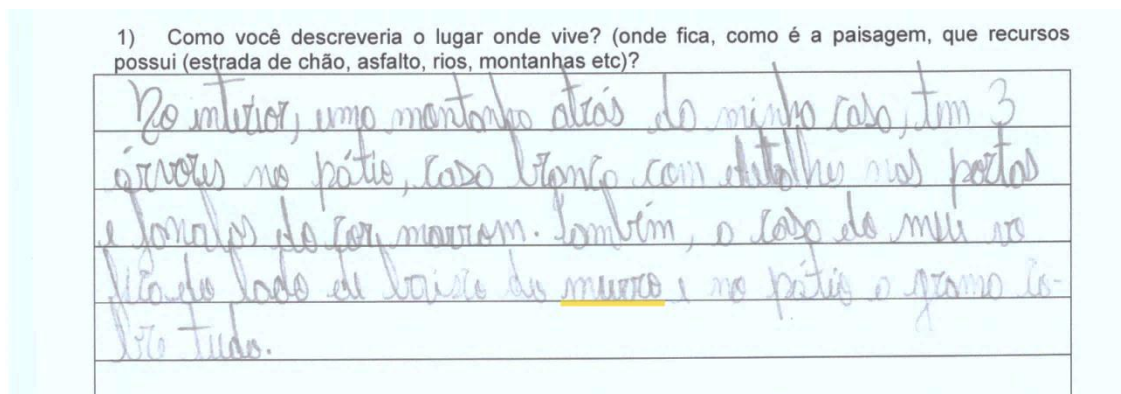 1) Como você descreveria o lugar onde vive? (onde fica, como é a paisagem, que recursos
possui (estrada de chão, asfalto, rios, montanhas etc)?
No interior, uma montanha atrás da minha casa, tem 3
árvores no pátio, casa branca com detalhes nas portas
e janelas da cor marrom. Também, a casa do meu vo
fica do lado de baixo do murro e no pátio a grama co-
bre tudo.